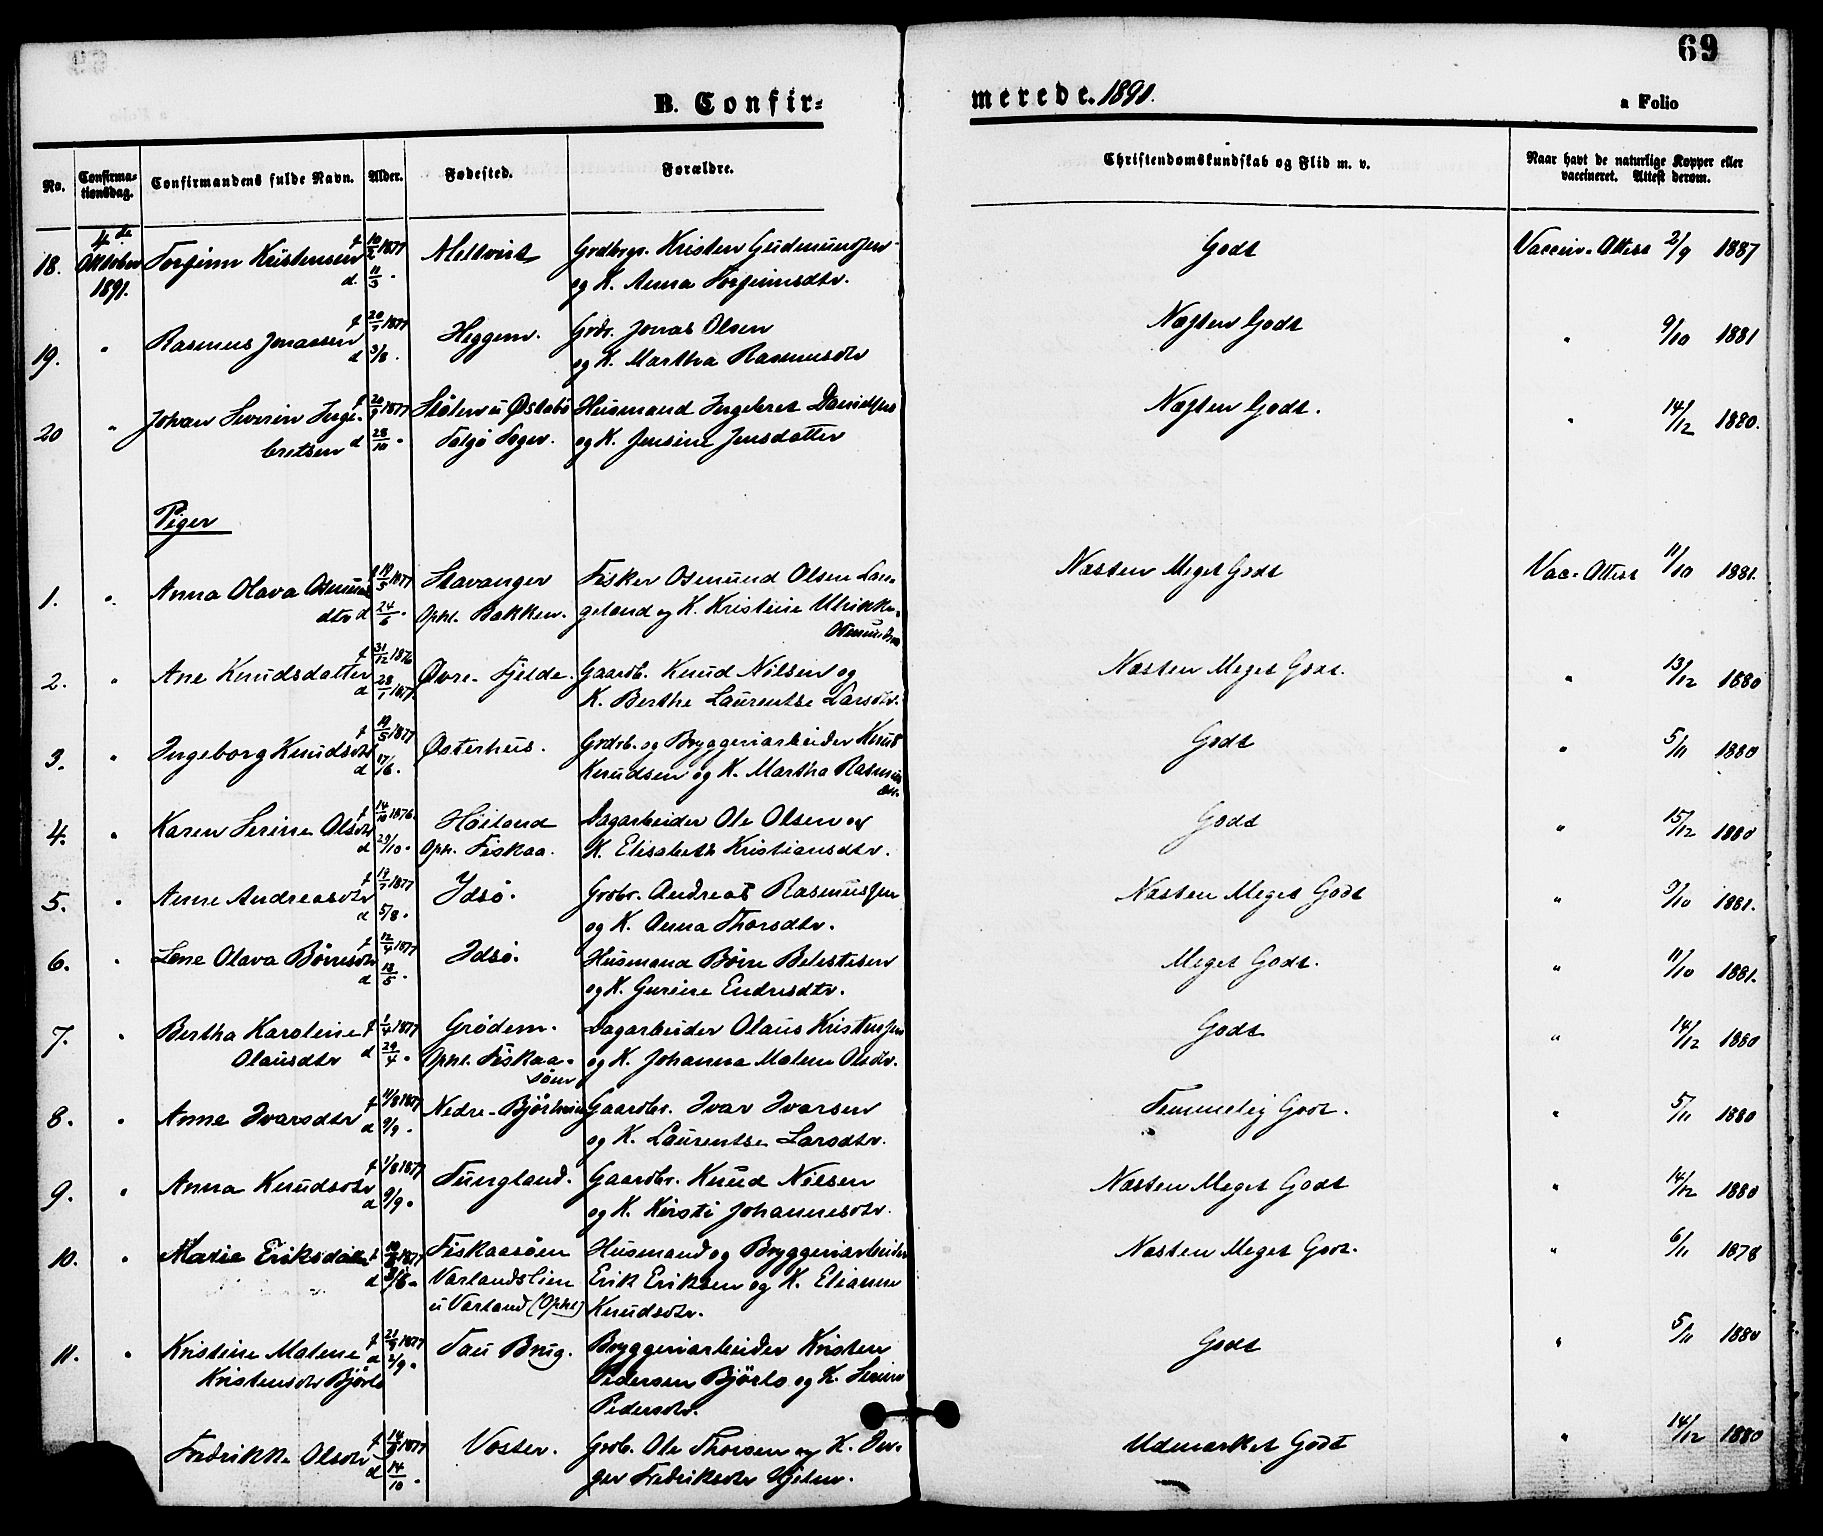 69
B. Confir=
merede. 1891.
a Folio
No.
Confirma-
tionsdag.
Confirmandens fulde Navn.
Alder.
Fødested.
Forældre.
Christendomskundskab og Flid m. v.
Naar havt de naturlige Kopper eller
vaccineret. Attest derom.
18. 4de Oktober 1891. Torfinn Kristensen f 10/2 1877 Meltveit Grdbrgr. Kristen Gudmundsen Godt Vaccin. Attest 2/9 1887
d. 11/3 . og K. Anna Torfinnsdtr.
19. " Rasmus Jonassen f 20/7 1877 Heggem. Grdr. Jonas Olsen Næsten Godt " 9/10 1881
d 3/8 . og K. Martha Rasmusdtr
20 " Johan Severin Inge- f 20/9 1877 Stølen u Østabø Husmand Ingebret Danielsen Næsten Godt. " 14/12 1880.
bretsen d 28/10 . Talgø Sogn. og K. Jensine Jensdatter
Piger
1. " Anna Olava Osmunds f 19/5 1877 Stavanger Fisker Osmund Olsen Lan- Næsten Meget Godt Vac. Attest 11/10 1881.
dtr d 24/6 . Ophl. Bakken. geland og K. Kristine Ulrikke
Osmundsen
2. " Ane Knudsdatter f 31/12 1876 Øvre-Fjelde. Gaardb. Knud Nilsen og Næsten Meget Godt. " 13/12 1880
d 28/1 1877. K. Berthe Laurentse Larsdtr.
3. " Ingeborg Knudsdtr f 19/5 1877 Østerhus. Grdb. og Bryggeriarbeider Knud Godt " 5/11 1880
d 17/6 . Knudsen og K. Martha Rasmus
dtr.
4. " Karen Serine Olsdtr f 14/10 1876. Høiland Dagarbeider Ole Olsen og Godt " 15/12 1880
d 29/10 . Oph. Fiskaa. K. Elisabeth Kristiansdtr.
5. " Anne Andreasdtr f 14/7 1877 Idsø. Grdbr. Andreas Rasmussen Næsten Meget Godt " 9/10 1881.
d 5/8 . og K. Anna Thorsdtr.
6. " Lene Olava Børresdtr f 12/4 1877 Idsø. Husmand Børre Belestesen Meget Godt. " 11/10 1881.
d 13/5 . og K. Gurine Endresdtr.
7. " Bertha Karoline f 1/4 1877 Grødem. Dagarbeider Olaus Kristensen Godt " 14/12 1880
Olausdtr d 29/4 . Ophl. Fiskaa- og K. Johanna Malene Olsdtr.
søen
8. " Anne Ivarsdtr f 11/8 1877 Nedre-Bjørheim Gaardbr. Ivar Ivarsen Temmelig Godt. " 5/11 1880
d 9/9 . og K. Laurentse Larsdtr.
9. " Anna Knudsdtr f 1/8 1877 Tungland. Gaardbr. Knud Nilsen Næsten Meget Godt " 14/12 1880
d 9/9 . og K. Kirsti Johannesdtr.
10. " Marie Eriksdatter f 1877 Fiskaasøen Husmand og Bryggeriarbeider Næsten Meget Godt. " 6/11 1878
d Varlandslien Erik Eriksen og K. Elianne
u Varland (Ophl) Knudsdtr.
11. " Kristine Malene f 21/7 1877 Tau Brug. Bryggeriarbeider Kristen Godt " 5/11 1880
Kristensdtr Bjørlo d 2/9 . Pedersen Bjørlo og K. Serine
Pedersdtr.
Fredrikke Olsdtr f 14/9 1877 Voster. Grdb. Ole Thorsen og K. In- Udmærket Godt " 14/12 1880
d 14/10 . ger Fredriksdtr Hjelm.